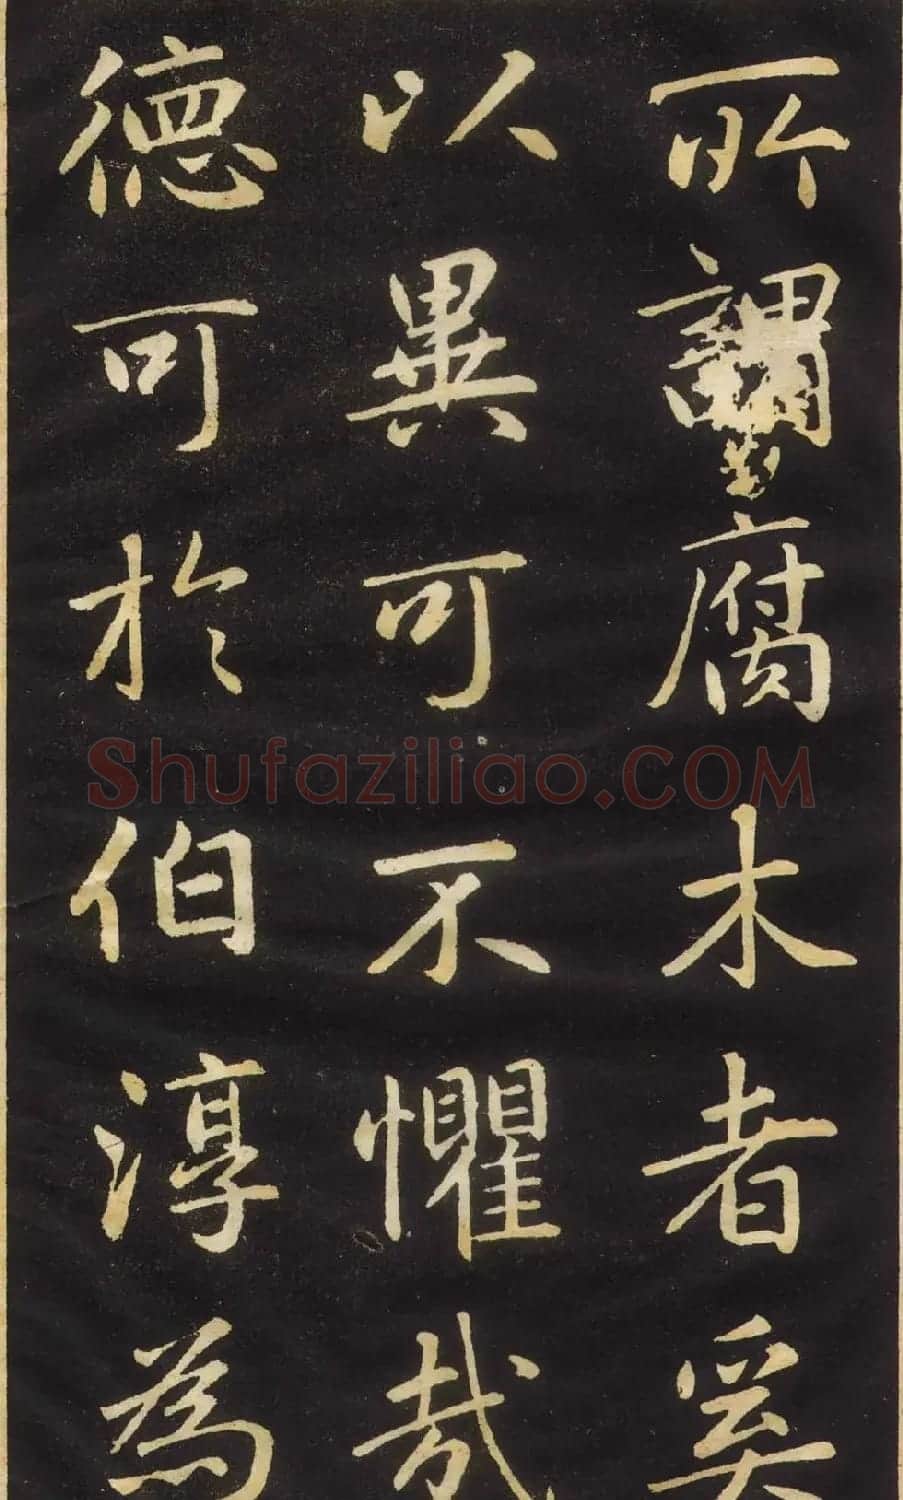 所謂腐木者奚
以異可不懼哉
德可於伯淳為
Shufaziliao.COM